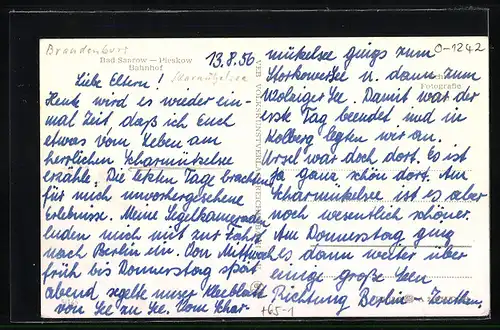 Brandenburg
Bad Saarow – Pieskow
Bahnhof
Scharmützelsee
13.8.56
O-1242
Liebe Eltern!
Heute wird es wieder ein-
mal Zeit daß ich Euch
etwas vom Leben am
herrlichen Scharmützelsee
erzähle. Die letzten Tage brachten
für mich unvorhergesehene
Erlebnisse. Meine Segelkameraden
luden mich mit zur Fahrt
nach Berlin ein. Von Mittwoch
früh bis Donnerstag spät
abend segelte unser Kleeblatt
von See zu See. Vom Schar-
mützelsee gings zum
Storkower See u. dann zum
Wolziger See. Damit war der
erste Tag beendet und in
Kolberg legten wir an.
Ursel war doch dort. Es ist
ja ganz schön dort. Am
Scharmützelsee ist es aber
noch wesentlich schöner.
Am Donnerstag ging
es dann weiter über
einige große Seen
Richtung Berlin – Zeuthen.
Fotografie
VEB VOLKSKUNSTVERLAG REICHENBACH
+65-1